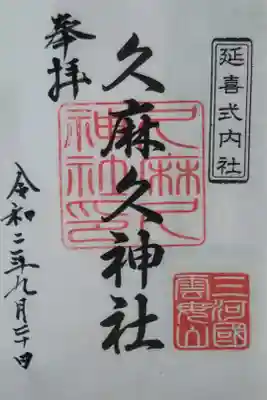 延喜式内社
奉拝
久麻久神社
久麻久
神社印
三河國
令和二年九月二十日